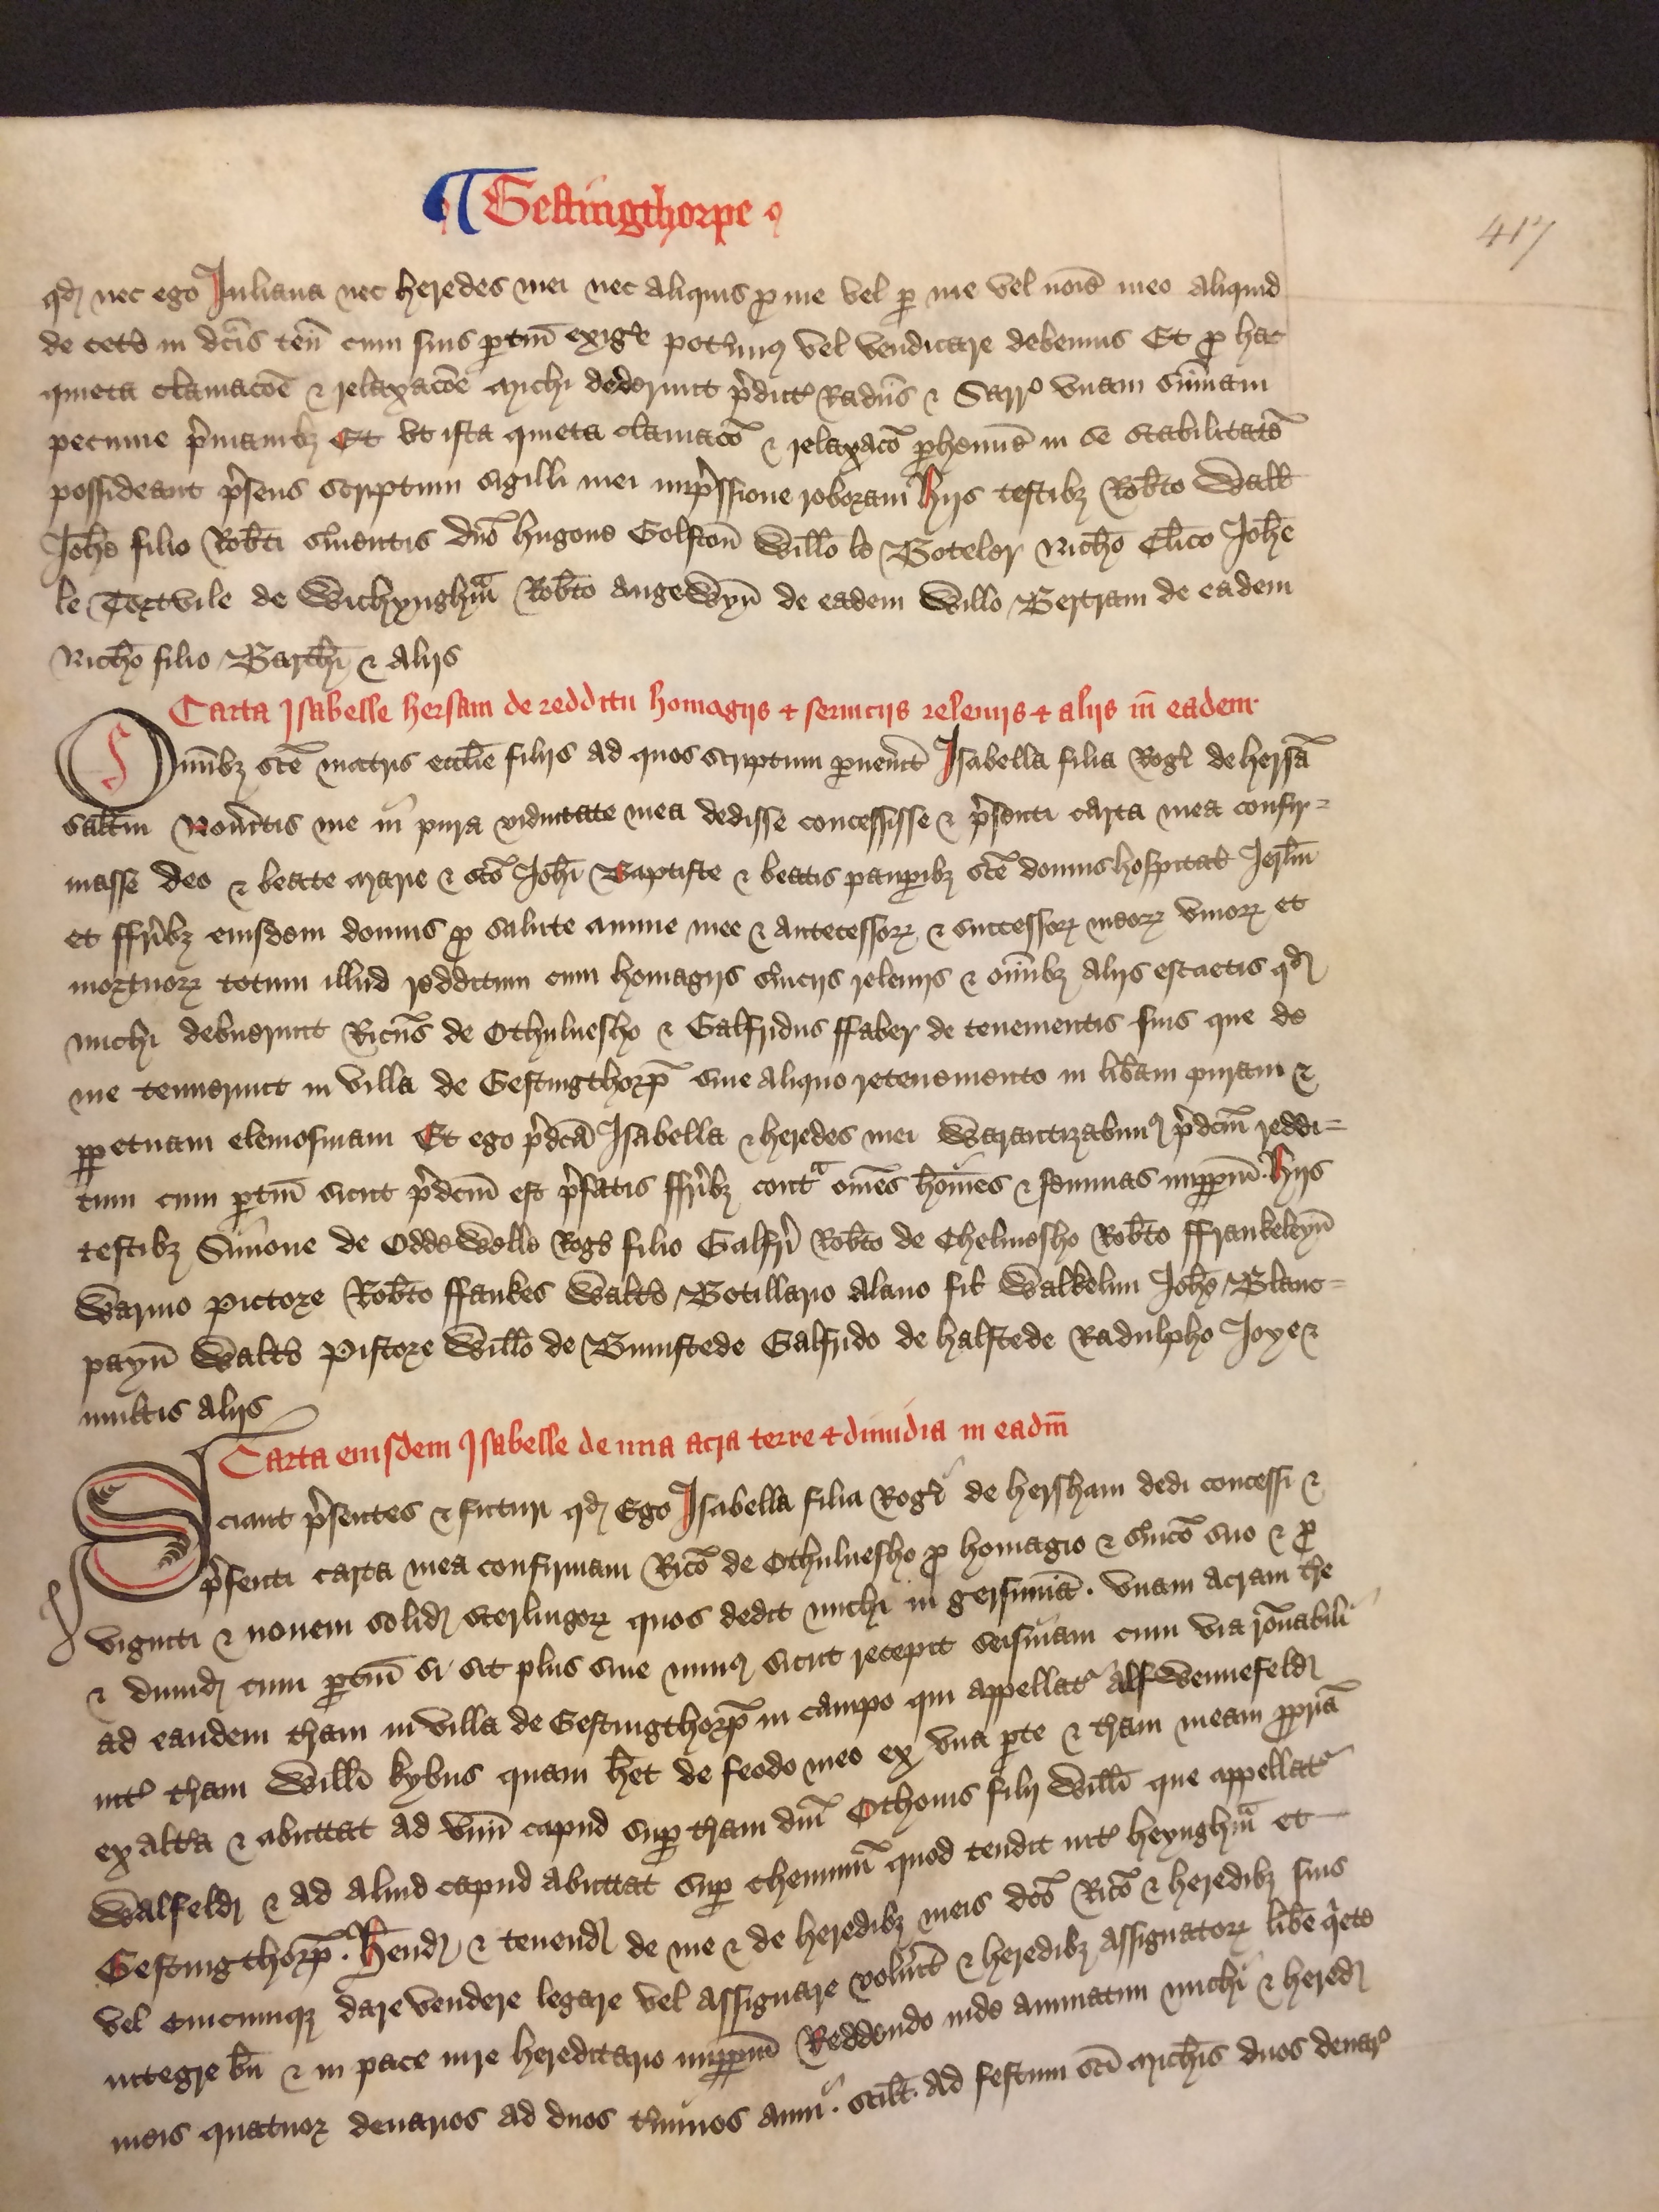 ¶ Gestingthorpe
417
qd nec ego Juliana nec heredes mei nec aliquis p me vel p me vel noīe meo aliquid
de cet̄o in dc̄is ten̄ cum suis ptin̄ exiḡe pot̄imus vel vendicare debemus Et p hac
quieta clamacōe & relaxacōe michi dederunt p̄dict Radūs & Sarr vnam sum̄am
pecunie p̄manibz Et vt ista quieta clamacō & relaxacō phennē in se stabilitatē
possideant p̄sens scriptum sigilli mei imp̄ssione roboraui hijs testibz Rob̄to Walt̄
Joh̄e filio Rob̄ti s̄uientis dn̄o hugone Golston̄ Willo le Boteler Nich̄o Clīco Joh̄e
le Tortvile de Wichynghm̄ Rob̄to Angewyn̄ de eadem Willo Bertram de eadem
Nich̄o filio Barth̄i & alijs
Carta Isabelle hersam de redditu homagijs & seruicijs releuijs & alijs in̄ eadem
Omībz sc̄e matris eccl̄ie filijs ad quos scriptum puen̄it Isabella filia Roḡi de hersā
salt̄m Noūitis me in pura viduitate mea dedisse concessisse & p̄senti carta mea confir=
masse deo & beate marie & sc̄o Joh̄i Baptiste & beatis paupibz sc̄e domus hospital Jerlm̄
et ffr̄ibz eiusdem domus p salute anime mee & antecessorz & successorz meorz viuorz et
mortuorz totum illud redditum cum homagijs s̄uicijs releuijs & om̄ibz alijs escaetis qd
michi debuerunt Ricūs de Othulueho & Galfridus ffaber de tenementis suis que de
me tenuerunt in villa de Gestingthorp̄ sine aliquo retenemento in lib̄am puram &
ppetuam elemosinam Et ego p̄dc̄a Isabella & heredes mei Warantizabim9 p̄dcm̄ reddi=
tum cum ptin̄ sicut p̄dcm̄ est p̄fatis ffr̄ibz cont̄a omēs homies & feminas imppm̄ hijs
testibz Simone de Oddewelle Roḡo filio Galfr̄i Rob̄to de Chelmesho Rob̄to ffrankeleyn̄
Warino pictore Rob̄to ffankes Walt̄o Botillario Alano fil Walkelini Joh̄e Blanc=
payn̄ Walt̄o Pistore Will̄o de Bumstede Galfrido de halstede Radulpho Joye &
multis alijs
Carta eiusdem Isabelle de una acra terre & dimidia in eadm̄
Sciant p̄sentes & futuri qd Ego Isabella filia Roḡi de hersham dedi concessi &
p̄senti carta mea confirmaui Ric̄o de Othulueho p homagio & s̄uicō suo & p
viginti & nouem solid sterlingorz quos dedit michi in gersumā. vnam acram t̄re
& dimid cum ptin̄ si sit plus siue min9 sicut recepit seisinam cum via rōnabili
ad eandem t̄ram in villa de Gestingthorp̄ in campo qui appellat Alfwennefeld
int t̄ram Will̄i kybus quam h̄et de feodo meo ex vna pte & t̄ram meam ppriā
ex alt̄a & abuttat ad vnū capud sup t̄ram dn̄i Othonis filij Will̄i que appellat
Walfeld & ad aliud capud abuttat sup chemin̄ū quod tendit int heynghm̄ et
Gestingthorp̄. h̄end & tenend de me & de heredibz meis dc̄o Ric̄o & heredibz suis
vel cuicumqz dare vendere legare vel assignare volūit & heredibz assignatorz lib̄e q̄ete
integre bn̄ & in pace iure hereditario imppm̄ Reddendo inde annuatim michi & hered
meis quatuor denarios ad duos t̄minos anni. scil̄t ad festum sc̄i mich̄is duos denar